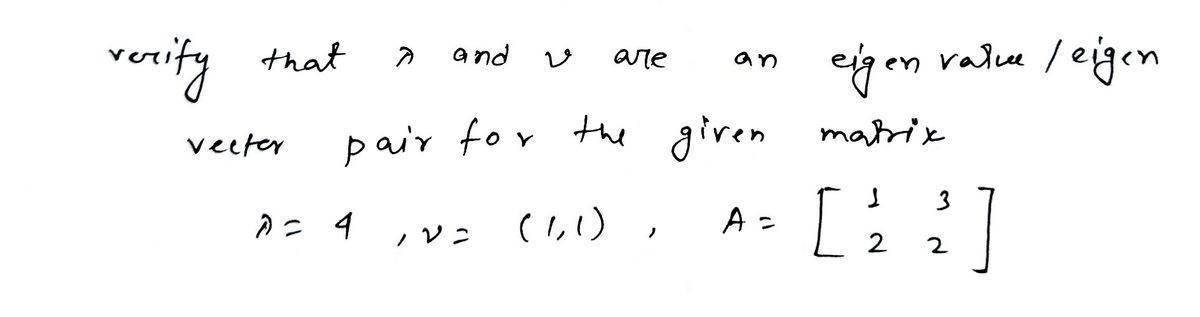 verify that λ and v are an eigen value / eigen
vector pair for the given matrix
λ = 4 , v = (1,1) , A = [ 1 3
2 2 ]